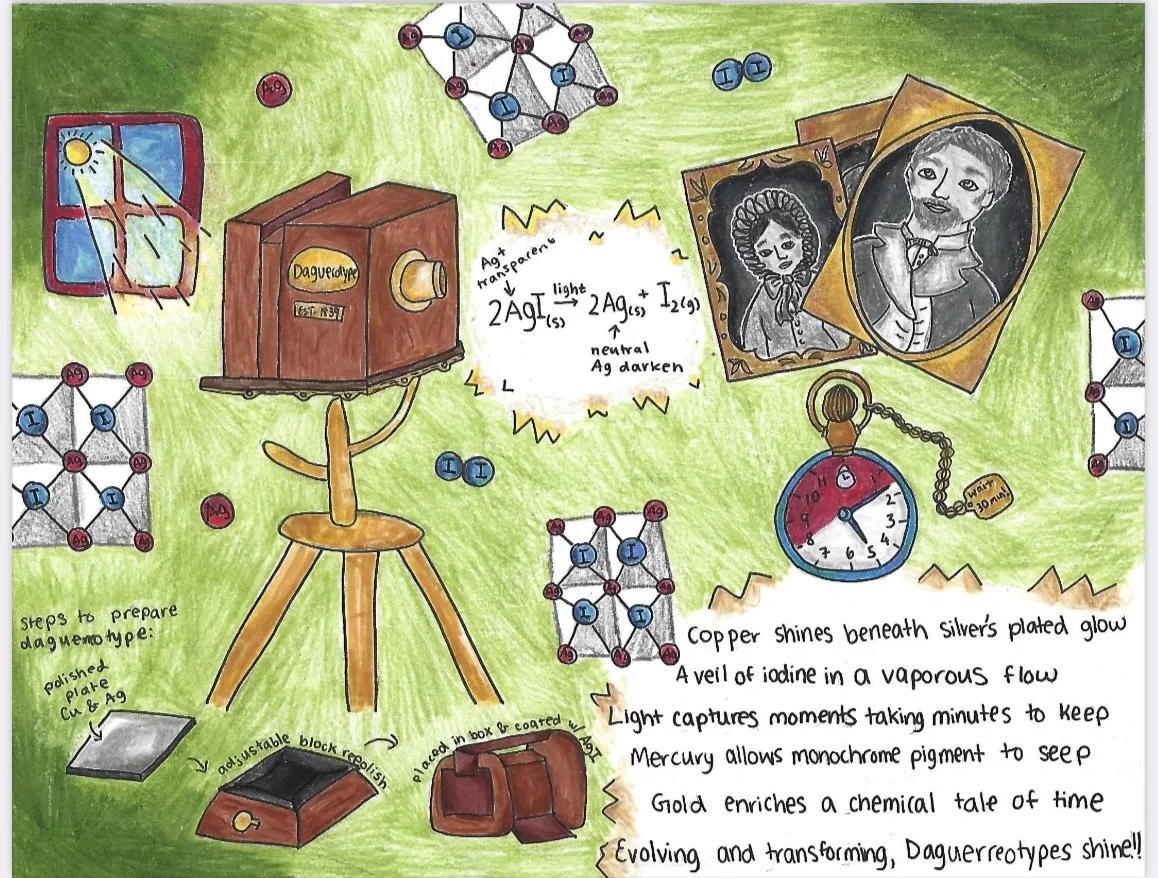 Ag
Ag
I
I
Ag
I
Ag
Ag
I
Ag
Ag
I I
Ag
Daguerotype
EST. 1839
Ag+
transparent
light
2AgI(s) → 2Ag(s) + I2(g)
neutral
Ag darken
Ag Ag
I I
Ag Ag
I I
Ag Ag
Ag
I I
Ag
I
Ag
I
Ag
11 1
10 2
9 3
8 4
7 6 5
wait
30 min!
Ag Ag Ag
I I
Ag Ag Ag
I I
Ag Ag Ag
Steps to prepare
daguerrotype:
polished
plate
Cu & Ag
adjustable block repolish
placed in box & coated w/ AgI
Copper shines beneath silver's plated glow
A veil of iodine in a vaporous flow
Light captures moments taking minutes to keep
Mercury allows monochrome pigment to seep
Gold enriches a chemical tale of time
Evolving and transforming, Daguerreotypes shine!!